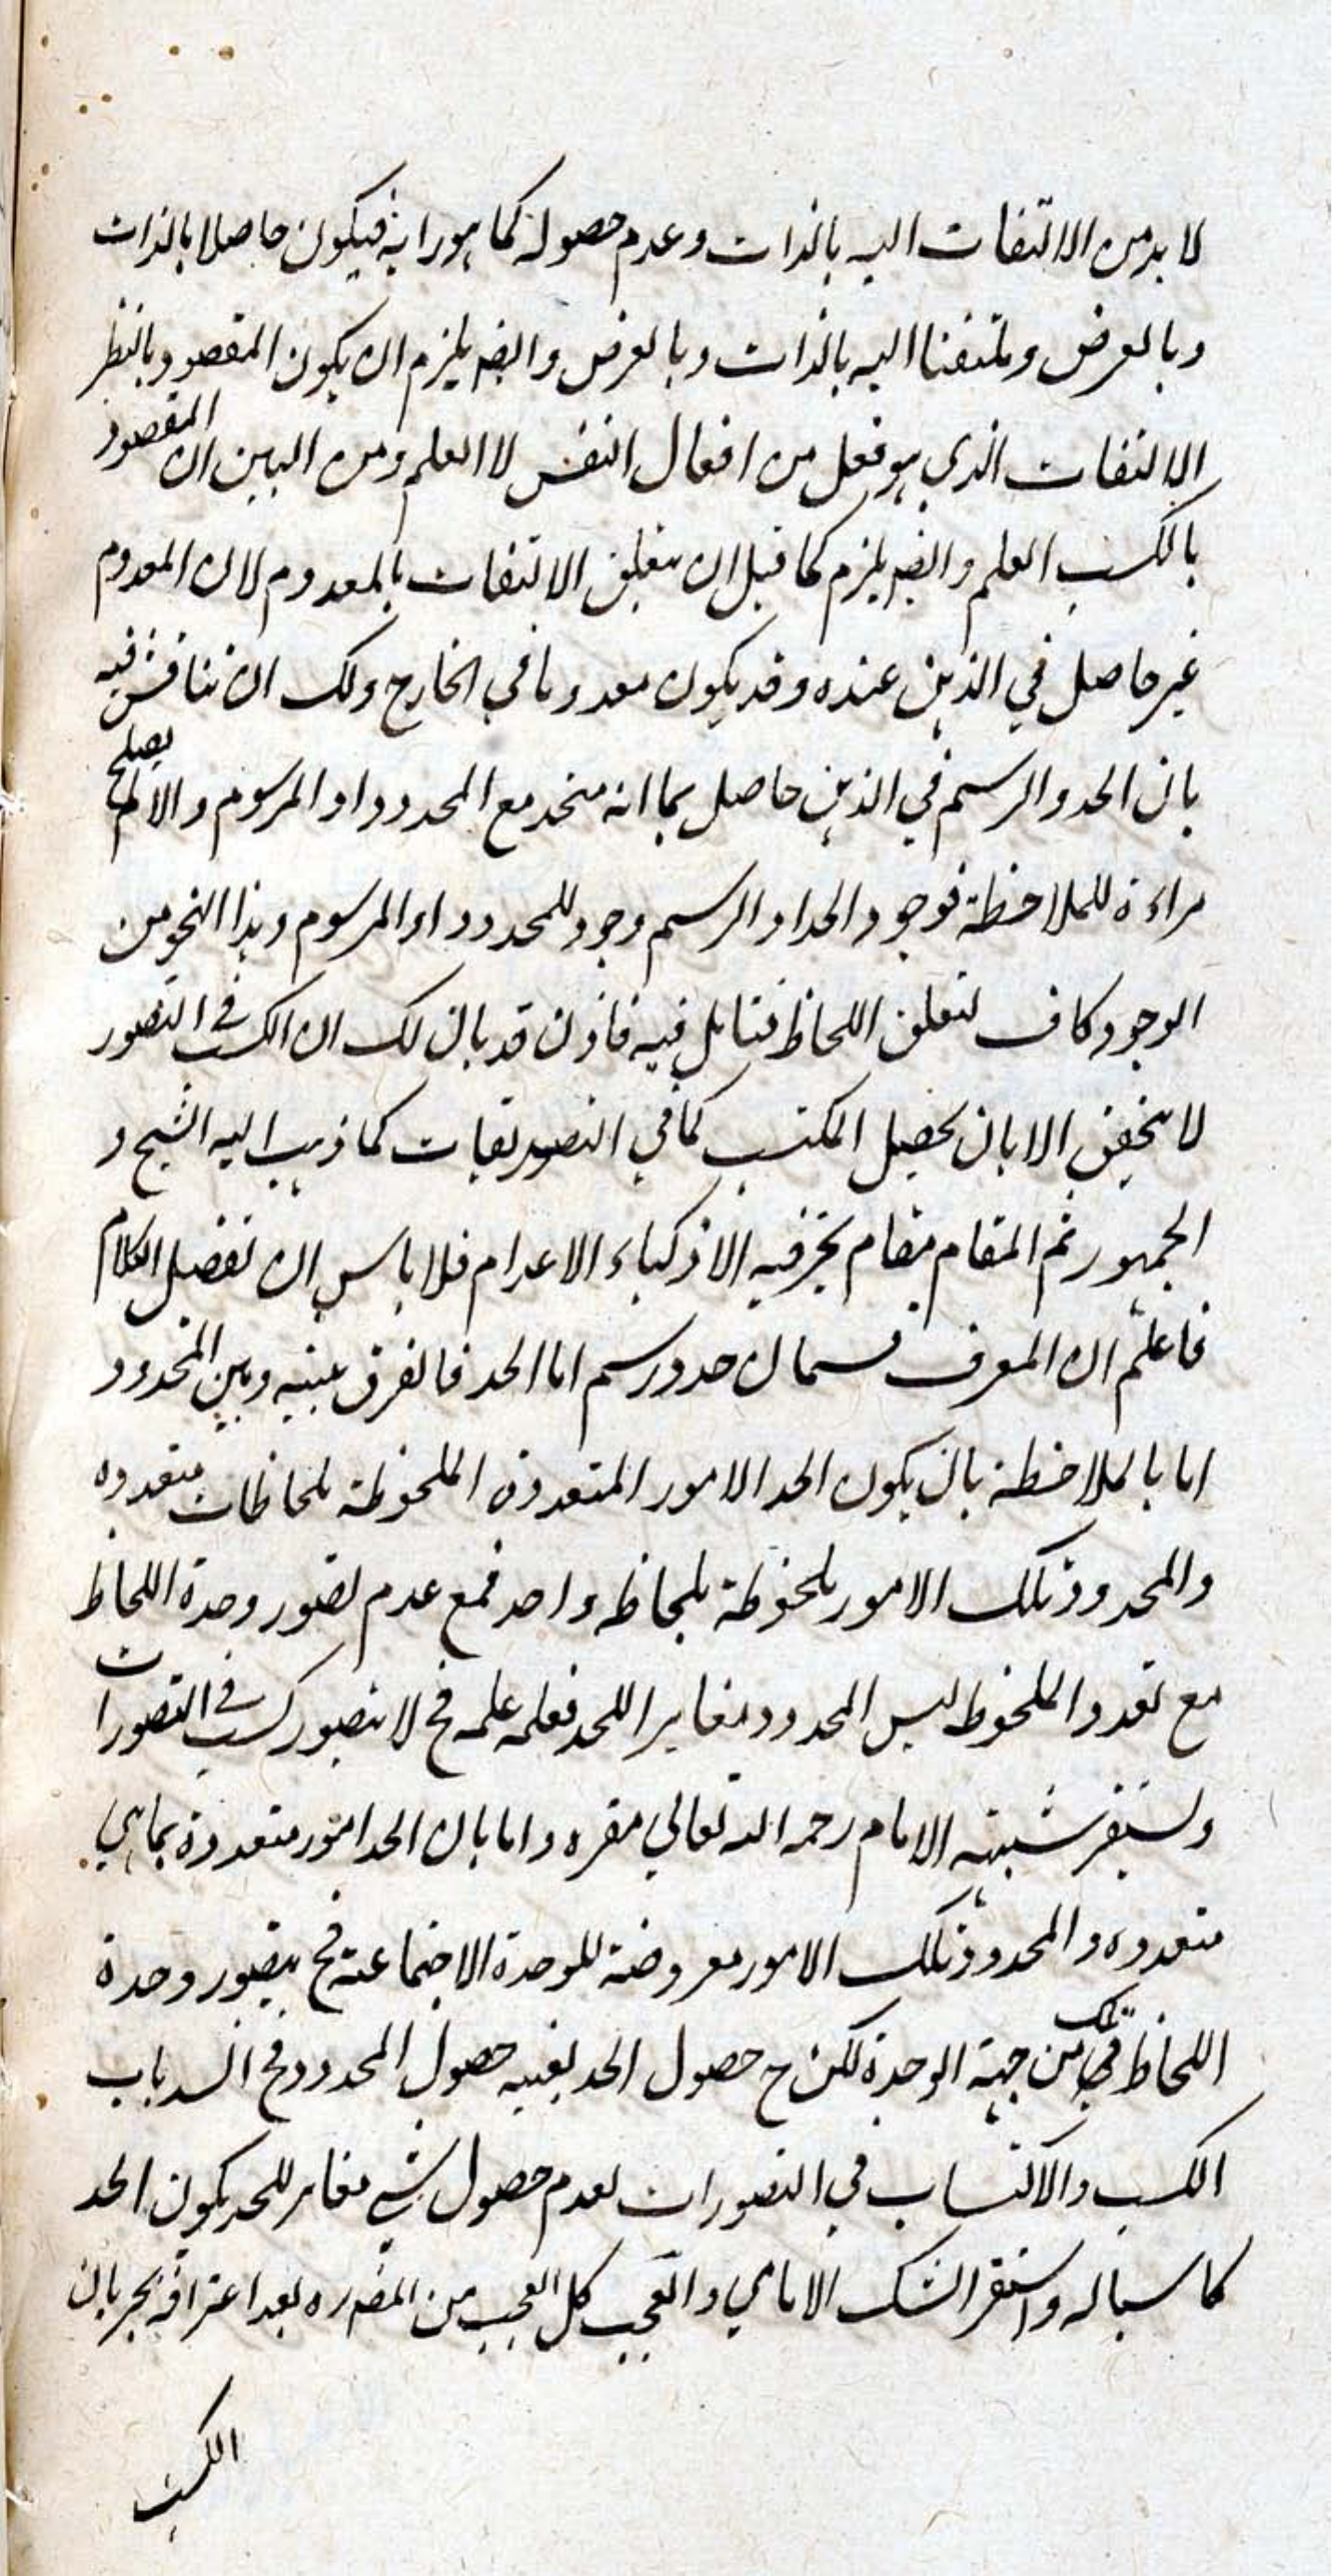 لا بد من الالتفات اليه بالذات وعدم حصوله كما هو رايه فيكون حاصلا بالذات
وبالعرض وملتفتا اليه بالذات وبالعرض وايضا يلزم ان يكون المقصود بالنظر
الالتفات الذي هو فعل من افعال النفس لا العلم ومن البين ان المقصود
بالكسب العلم وايضا يلزم كما قيل ان يتعلق الالتفات بالمعدوم لان المعدوم
غير حاصل في الذهن عنده وقد يكون معدوما في الخارج ولك ان تناقش فيه
بان الحد والرسم في الذهن حاصل بما انه متحد مع المحدود او المرسوم والا لم يصلح
مراءة للملاحظة فوجود الحد او الرسم وجود للمحدود او المرسوم وهذا النحو من
الوجود كاف لتعلق اللحاظ فتامل فيه فاذن قد بان لك ان الكسب في التصور
لا يتحقق الا بان يحصل المكتسب كما في التصديقات كما ذهب اليه الشيخ و
الجمهور ثم المقام مقام تحير فيه الاذكياء الاعلام فلا باس ان نفصل الكلام
فاعلم ان المعرف قسمان حد ورسم اما الحد فالفرق بينه وبين المحدود
اما بالملاحظة بان يكون الحد الامور المتعددة الملحوظة بلحاظات متعدده
والمحدود تلك الامور ملحوظة بلحاظ واحد فمع عدم تصور وحدة اللحاظ
مع تعدد الملحوظ ليس المحدود مغايرا للحد فعلمه علمه فح لا يتصور كسب في التصورات
ويستقر شبهة الامام رحمه الله تعالي مقره واما بان الحد امور متعددة بما هي
متعدده والمحدود تلك الامور معروضة للوحدة الاجتماعية فح يتصور وحدة
اللحاظ في تلك من جهة الوحدة لكن ح حصول الحد بعينه حصول المحدود فح انسد باب
الكسب والاكتساب في التصورات لعدم حصول شيء مغاير للحد يكون الحد
كاسبا له واستقر الشك الامامي والعجب كل العجب من المصره بعد اعترافه بجريان
الكسب